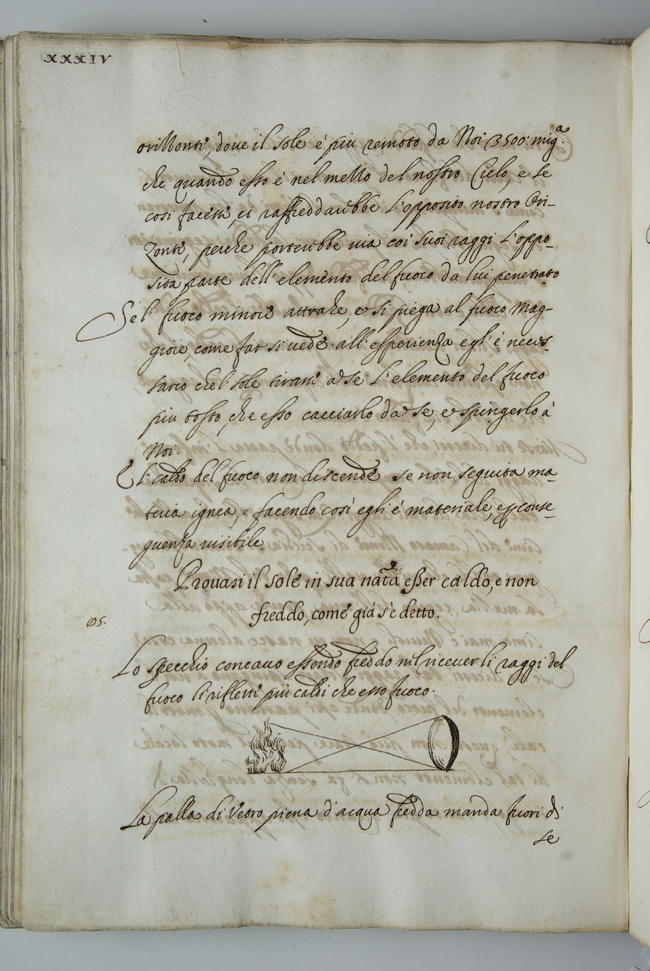 XXXIV
orizzonti, doue il sole è piu remoto da Noi 3500. mig.a
che quando esso è nel mezzo del nostro Cielo, e se
cosi facesse, ci raffreddarebbe l'opposito nostro Ori-
zonte, perche portarebbe uia coi suoi raggi l'oppo-
sita parte dell'elemento del fuoco da lui penetrato
Se'l fuoco minore attrahe, e si piega al fuoco Mag-
giore come far si uede all'esperienza egl'è neces-
sario che'l sole tirassi a se l'elemento del fuoco
piu tosto, che esso cacciarlo da se, e spingerlo à
Noi.
E l caldo del fuoco non discende se non seguita ma-
teria ignea, e facendo cosi egli è materiale, e per conse-
guenza uisibile
Prouasi il sole in sua nat.a esser caldo, e non
freddo, come già s'è detto.
105.
Lo specchio concauo essendo freddo nel riceuer li raggi del
fuoco li rifletti più caldi che esso fuoco.
La palla di Vetro piena d'acqua fredda manda fuori di
se